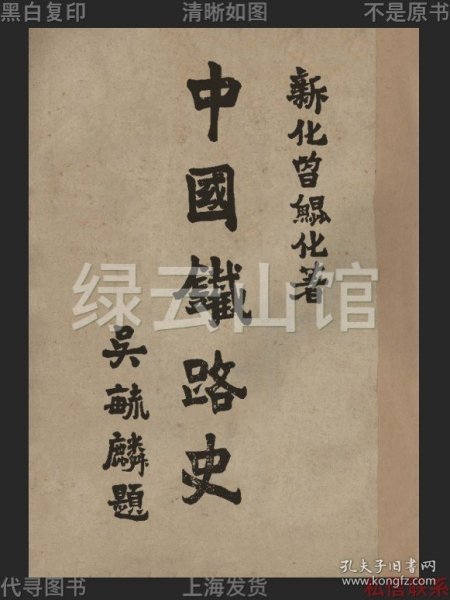 黑白复印 清晰如图 不是原书
新化曾鲲化著
中國鐵路史
吴毓麟題
绿云山馆
孔夫子旧书网
www.kongfz.com
代寻图书 上海发货 私信联系